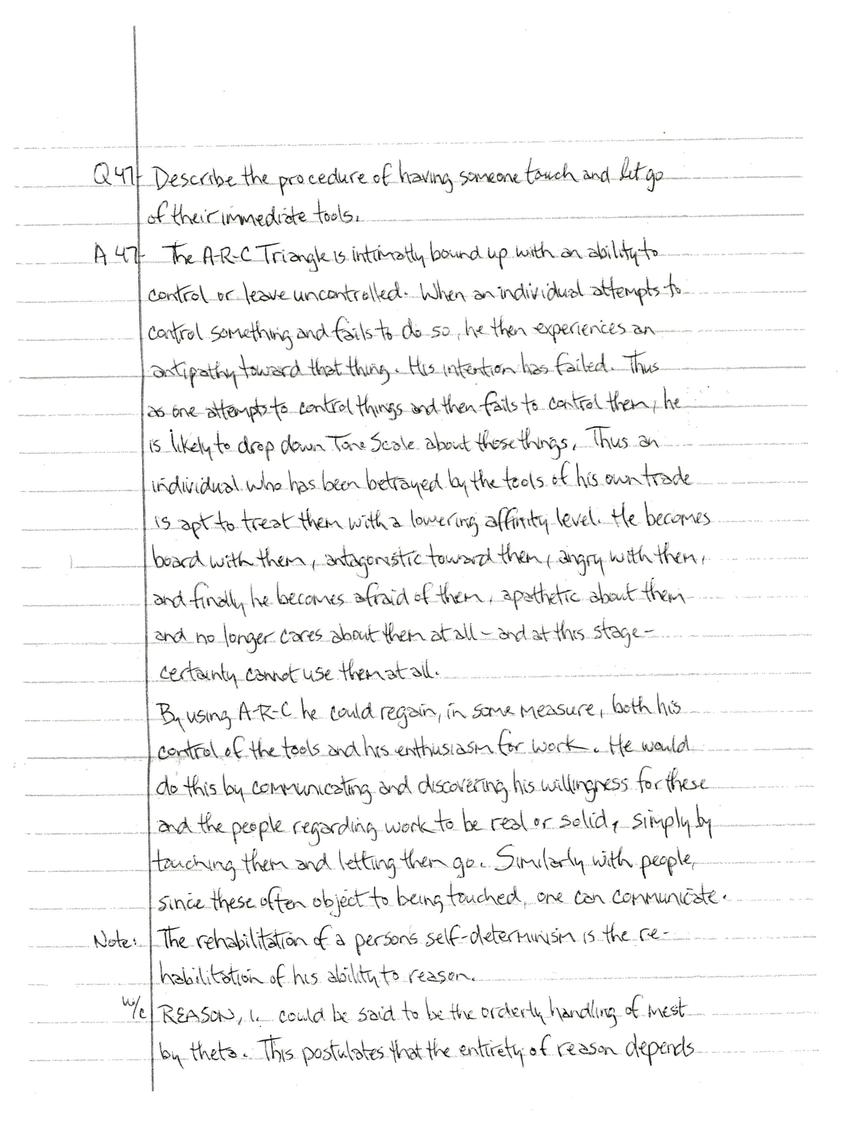 Q47- Describe the procedure of having someone touch and let go
of their immediate tools.
A 47- The A-R-C Triangle is intimatly bound up with an ability to
control or leave uncontrolled. When an individual attempts to
control something and fails to do so, he then experiences an
antipathy toward that thing. His intention has failed. Thus
as one attempts to control things and then fails to control them, he
is likely to drop down Tone Scale about those things. Thus an
individual who has been betrayed by the tools of his own trade
is apt to treat them with a lowering affinity level. He becomes
board with them, antagonistic toward them, angry with them,
and finally he becomes afraid of them, apathetic about them
and no longer cares about them at all - and at this stage -
certainty cannot use them at all.
By using A-R-C he could regain, in some measure, both his
control of the tools and his enthusiasm for work. He would
do this by communicating and discovering his willingness for these
and the people regarding work to be real or solid, simply by
touching them and letting them go. Similarly with people,
since these often object to being touched, one can communicate.
Note: The rehabilitation of a persons self-determinism is the re-
habilitation of his ability to reason.
w/c REASON, 1. could be said to be the orderly handling of mest
by theta. This postulates that the entirety of reason depends